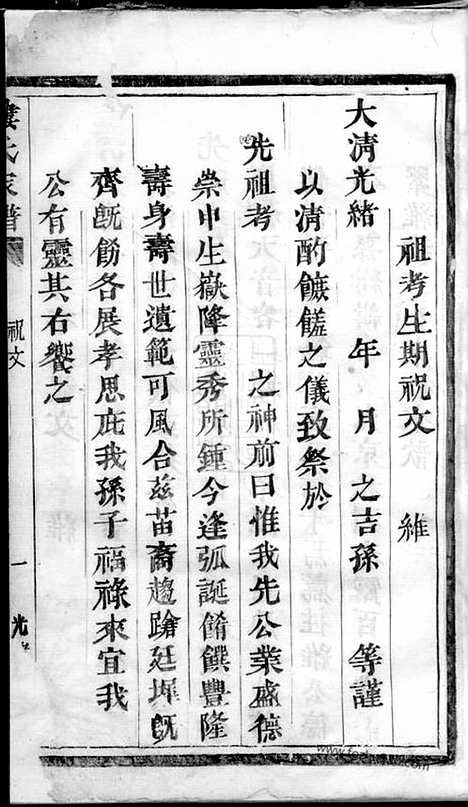 祖考生期祝文 維
大清光緒 年 月 之吉孫 等謹
以清酌饌饈之儀致祭於
先祖考 之神前曰惟我先公業盛德
崇申生嶽降靈秀所鍾今逢弧誕餚饌豐隆
壽身壽世遺範可風合茲苗裔趨蹌廷墀旣
齊旣飭各展孝思庇我孫子福祿來宜我
公有靈其右饗之
氏家譜
祝文
一
光